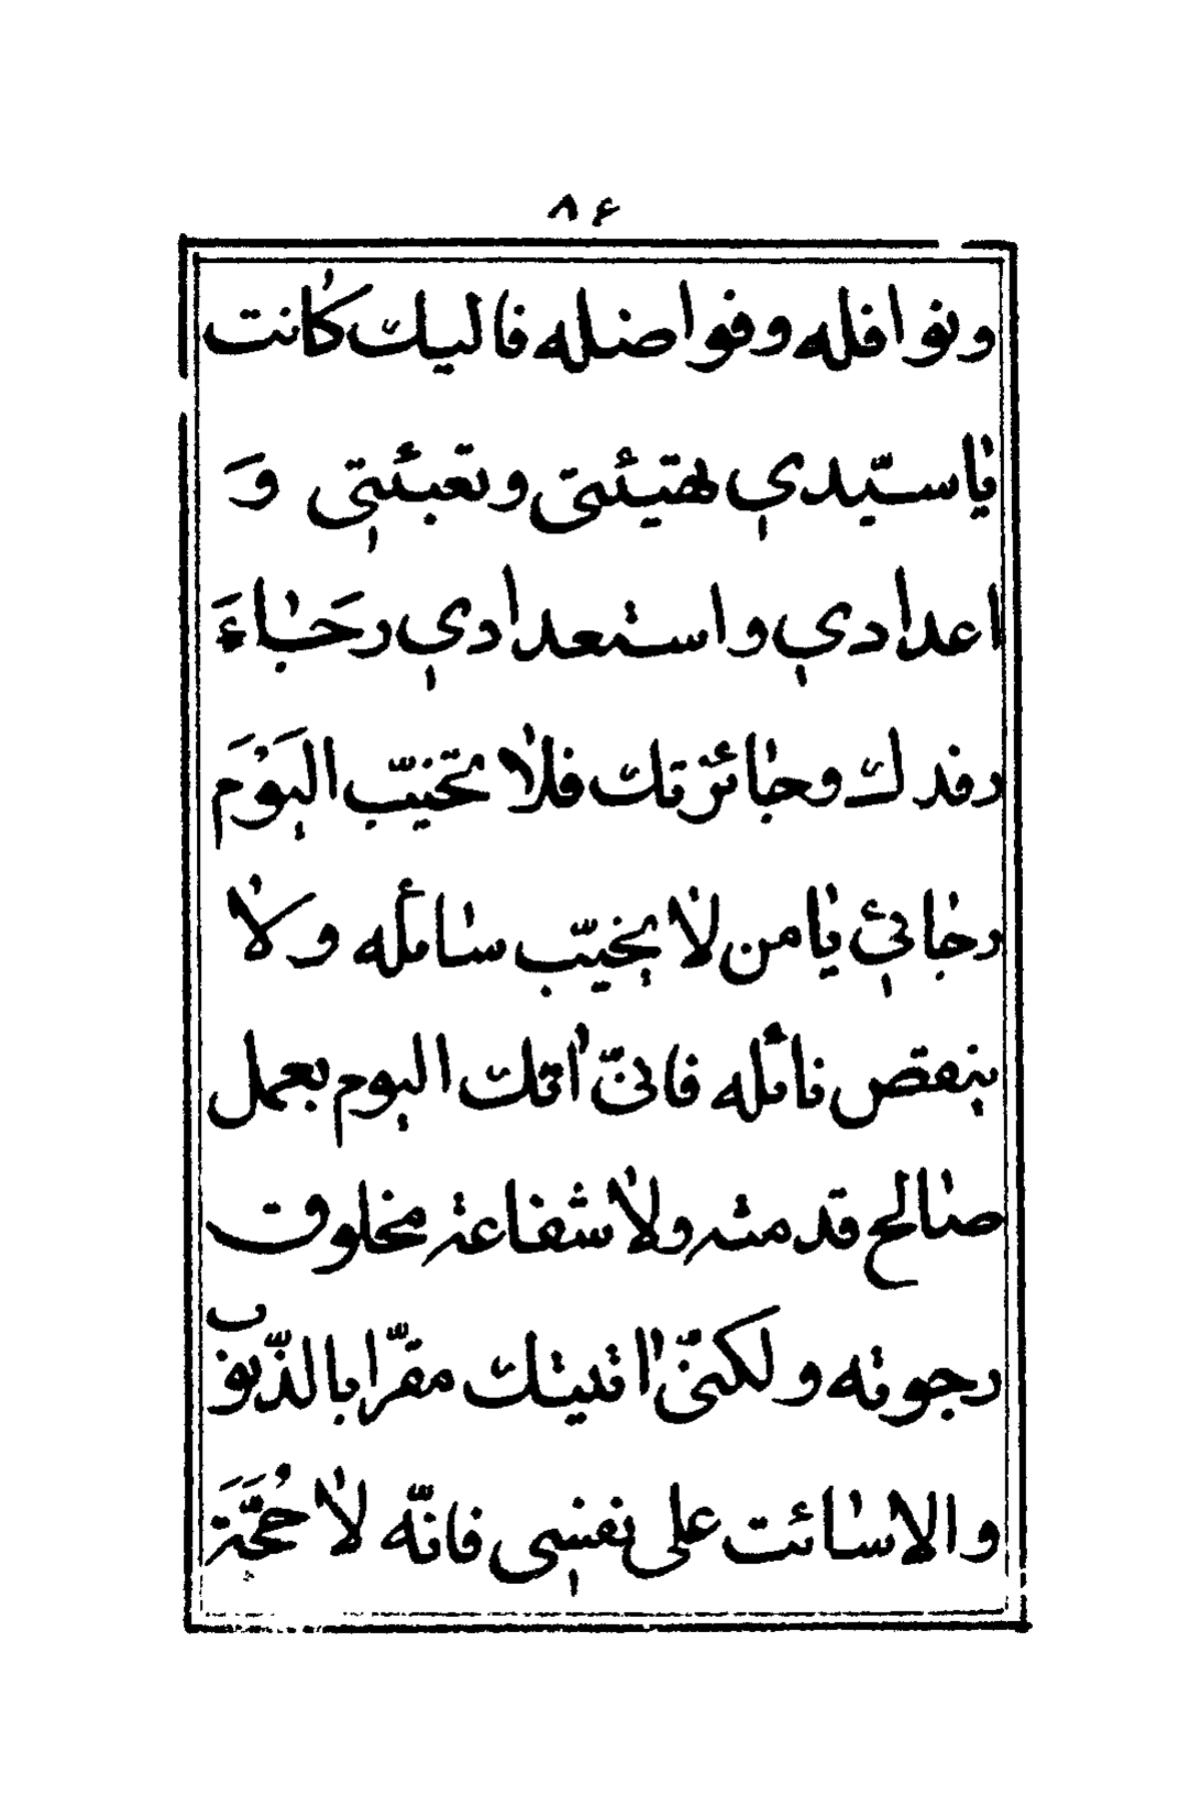 ۸۶
ونوافله وفواضله فاليك كانت
ياسيّدي تهيئتي وتعبئتي وَ
اعدادي واستعدادي رجَاءَ
رفدك وجائزتك فلا تخيّب اليَوْمَ
رجائي يا من لا يخيّب سائله ولا
ينقص نائله فانّي اتك اليوم بعمل
صالح قدمته ولا شفاعة مخلوق
رجوته ولكنّي اتيتك مقرّا بالذّنوب
والاسائت على نفسي فانّه لا حُجَّةَ